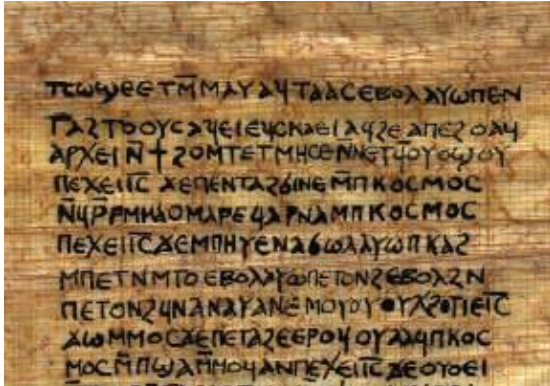 ⲧⲥⲱϣⲉⲉⲧⲙ̄ⲙⲁⲩⲁϥⲧⲁⲁⲥⲉⲃⲟⲗⲁⲩⲱⲡⲉⲛ
ⲧⲁϩⲧⲟⲟⲩⲥⲁϥⲉⲓⲉϥⲥⲕⲁⲉⲓⲁϥϩⲉⲁⲡⲉϩⲟⲁϥ
ⲁⲣⲭⲉⲓⲛ̄ϯϩⲟⲙⲧⲉⲧⲙⲏⲥⲉⲛⲛⲉⲧϥⲟⲩⲟϣⲟⲩ
ⲡⲉϫⲉⲓ̅ⲥ̅ϫⲉⲡⲉⲛⲧⲁϩϭⲓⲛⲉⲙ̄ⲡⲕⲟⲥⲙⲟⲥ
ⲛ̄ϥⲣ̄ⲣⲙⲙⲁⲟⲙⲁⲣⲉϥⲁⲣⲛⲁⲙⲡⲕⲟⲥⲙⲟⲥ
ⲡⲉϫⲉⲓ̅ⲥ̅ϫⲉⲙⲡⲏⲩⲉⲛⲁϭⲱⲗⲁⲩⲱⲡⲕⲁϩ
ⲙⲡⲉⲧⲛⲙⲧⲟⲉⲃⲟⲗⲁⲩⲱⲡⲉⲧⲟⲛϩⲉⲃⲟⲗϩⲛ
ⲡⲉⲧⲟⲛϩϥⲛⲁⲛⲁⲩⲁⲛⲉⲙⲟⲩⲟⲩⲭϩⲟⲧⲓⲉⲓ̅ⲥ̅
ϫⲱⲙⲙⲟⲥϫⲉⲡⲉⲧⲁϩⲉⲉⲣⲟϥⲟⲩⲁⲁϥⲡⲕⲟⲥ
ⲙⲟⲥⲙ̄ⲡϣⲁⲙ̄ⲙⲟϥⲁⲛⲡⲉϫⲉⲓ̅ⲥ̅ϫⲉⲟⲩⲟⲉⲓ